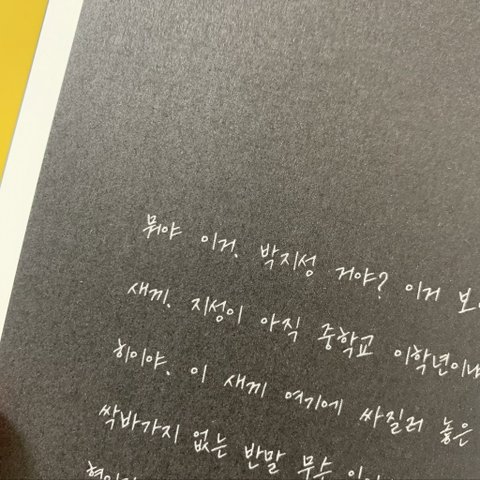 뭐야 이거. 박지성 거야? 이거
새끼. 지성이 아직 중학교 이학년이냐
히이야. 이 새끼 여기에 싸질러 놓은
싹바가지 없는 반말 무슨